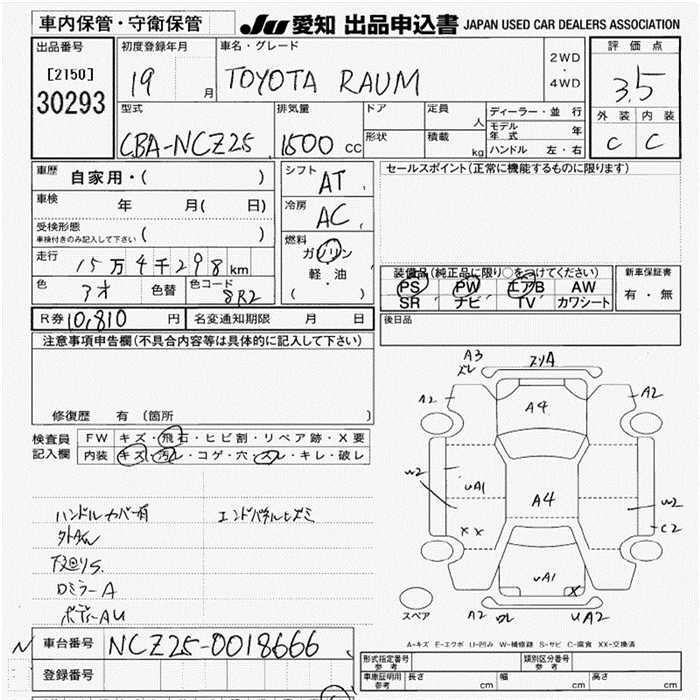 車内保管・守衛保管
JU 愛知 出品申込書 JAPAN USED CAR DEALERS ASSOCIATION
出品番号
[2150]
30293
初度登録年月
19 月
車名・グレード
TOYOTA RAUM
2WD
・
4WD
評価点
3.5
外装 内装
C C
型式
CBA-NCZ25
排気量
1500 CC
ドア
形状
定員
人
積載
kg
ディーラー・並行
モデル年式 年
ハンドル 左・右
車歴
自家用・( )
車検
年 月( 日)
受検形態
車検付きのみ記入して下さい ( )
走行
15万4千298 km
色
アオ
色替
色コード
8R2
シフト
AT
冷房
AC
燃料
ガソリン
・
軽・油
( )
セールスポイント(正常に機能するものに限ります)
装備品(純正品に限り○をつけてください)
PS PW エアB AW
SR ナビ TV カワシート
新車保証書
有・無
R券 10,810 円
名変通知期限 月 日
後日品
注意事項申告欄(不具合内容等は具体的に記入して下さい)
修復歴 有 (箇所 )
検査員
記入欄
FW キズ・飛石・ヒビ割・リペア跡・X要
内装 キズ・汚レ・コゲ・穴・スレ・キレ・破レ
ハンドルカバー有
エンドパネルヒズミ
外AW
下廻りS
ロミラーA
ボディーAU
A3
ズレ
スリA
A2
A2
A4
W2
UA1
A4
XX
W2
C2
UA1
X
スペア
A2
UA2
A-キズ E-エクボ U-凹み W-補修跡 S-サビ C-腐食 XX-交換済
N
車台番号
NCZ25-0018666
登録番号
形式指定番号
参考
類別区分番号
参考
車庫証明用
参考
長さ cm
幅 cm
高さ cm